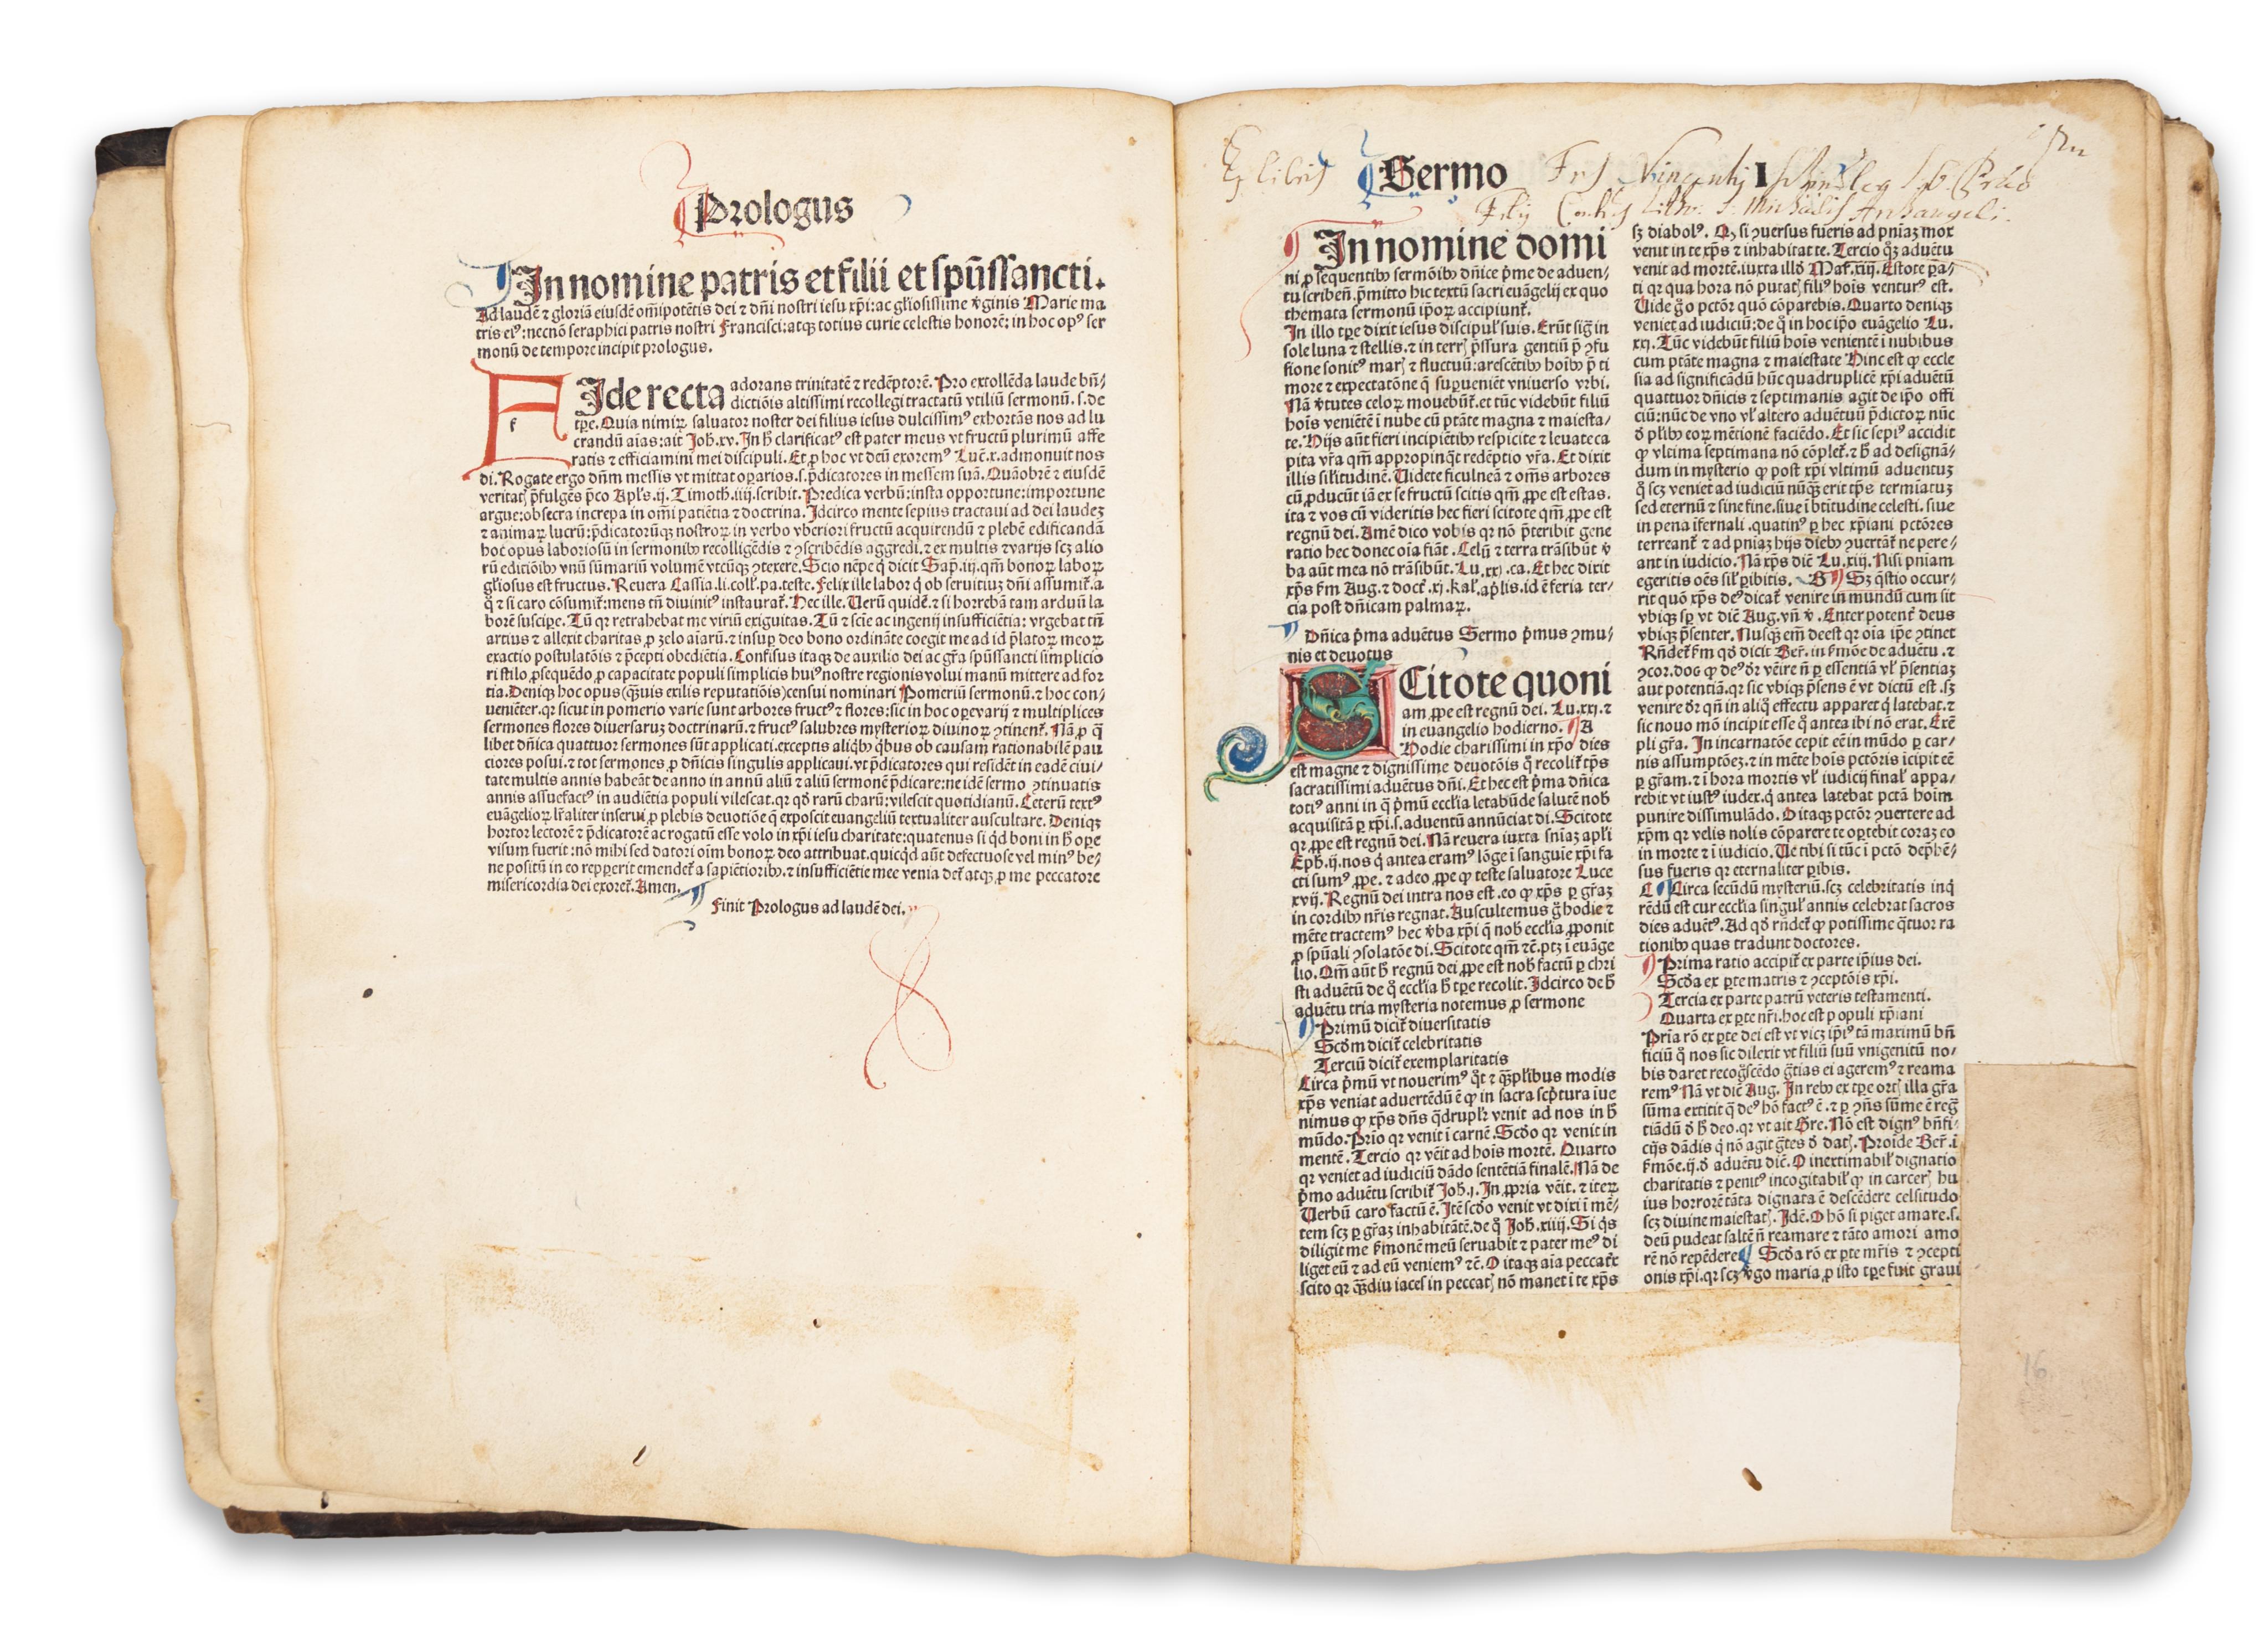 Prologus
In nomine patris et filii et spūssancti.
Ad laudē ⁊ gloriā eiusdē om̄ipotētis dei ⁊ dn̄i nostri iesu xp̄i: ac gl̄iosissime v̄ginis Marie ma
tris eiꝰ: necnō seraphici patris nostri Francisci: atqꝫ totius curie celestis honorē: in hoc opꝰ ser
monū de tempore incipit prologus.
FIde recta adorans trinitatē ⁊ redēptorē. Pro extollēda laude bn̄/
dictiōis altissimi recollegi tractatū vtiliū sermonū. s. de
tp̄e. Quia nimiꝝ saluator noster dei filius iesus dulcissimꝰ exhortās nos ad lu
crandū aīas: ait Joh̄. xv. In h̄ clarificatꝰ est pater meus vt fructū plurimū affe
ratis ⁊ efficiamini mei discipuli. Et ꝓ hoc vt deū exoremꝰ Luc̄. x. admonuit nos
di. Rogate ergo dn̄m messis vt mittat oꝑarios. s. p̄dicatores in messem suā. Quāobrē ⁊ eiusdē
veritatꝭ p̄fulgēs p̄co Apl̓s. ij. Timoth̄. iiij. scribit. Predica verbū: insta opportune: importune
argue: obsecra increpa in om̄i patiētia ⁊ doctrina. Idcirco mente sepius tractaui ad dei laudeꝫ
⁊ animaꝝ lucrū: p̄dicatorūqꝫ nostroꝝ in verbo vberiori fructū acquirendū ⁊ plebē edificandā
hoc opus laboriosū in sermonibꝰ recolligēdis ⁊ ꝯscribēdis aggredi. ⁊ ex multis ⁊ varijs scꝫ alio
rū editiōibꝰ vnū sūmariū volumē vtcūqꝫ ꝯtexere. Scio nēpe q̇ dicit Sap̄. iij. qm̄ bonoꝝ laboꝝ
gl̄iosus est fructus. Reuera Cassia. li. coll̓. pa. teste. Felix ille labor q̇ ob seruitiuꝫ dn̄i assumit̄. a
q̊ ⁊ si caro cōsumit̄: mens tn̄ diuinitꝰ instaurat̄. Hec ille. Uerū quidē. ⁊ si horrebā tam arduū la
borē suscipe. Tū qꝛ retrahebat me viriū exiguitas. Tū ⁊ scīe ac ingenij insufficiētia: vrgebat tn̄
artius ⁊ allexit charitas ꝓ zelo aīarū. ⁊ insuꝑ deo bono ordināte coegit me ad id p̄latoꝝ meoꝝ
exactio postulatōis ⁊ p̄cepti obediētia. Confisus itaqꝫ de auxilio dei ac gr̄a spūssancti simplicio
ri stilo ꝓsequēdo ꝓ capacitate populi simplicis huiꝰ nostre regionis volui manū mittere ad for
tia. Deniqꝫ hoc opus (q̄uis exilis reputatiōis) censui nominari Pomeriū sermonū. ⁊ hoc con/
ueniēter. qꝛ sicut in pomerio varie sunt arbores fructꝰ ⁊ flores: sic in hoc oꝑe varij ⁊ multiplices
sermones flores diuersaruꝫ doctrinarū. ⁊ fructꝰ salubres mysterioꝝ diuinoꝝ ꝯtinent̄. Nā ꝓ q̄
libet dn̄ica quattuor sermones sūt applicati. exceptis aliq̇bꝰ q̇bus ob causam rationabilē pau
ciores posui. ⁊ tot sermones ꝓ dn̄icis singulis applicaui. vt p̄dicatores qui residēt in eadē ciui/
tate multis annis habeāt de anno in annū aliū ⁊ aliū sermonē p̄dicare: ne idē sermo ꝯtinuatis
annis assuefactꝰ in audiētia populi vilescat. qꝛ qd̄ rarū charū: vilescit quotidianū. Ceterū textꝰ
euāgelioꝝ lr̄aliter inserui ꝓ plebis deuotiōe q̄ exposcit euangeliū textualiter auscultare. Deniqꝫ
hortor lectorē ⁊ p̄dicatorē ac rogatū esse volo in xp̄i iesu charitate: quatenus si q̇d boni in h̄ oꝑe
visum fuerit: nō mihi sed datori oīm bonoꝝ deo attribuat. quicq̇d aūt defectuose vel minꝰ be/
ne positū in eo repꝑerit emendet̄ a sapiētioribꝰ. ⁊ insufficiētie mee venia det̄ atqꝫ ꝓ me peccatore
misericordia dei exoret̄. Amen.
Finit Prologus ad laudē dei.
Ex libris
Sermo I
Michaelis Archangeli.
In nomine domi
ni ꝓ sequentibꝰ sermōibꝰ dn̄ice p̄me de aduen/
tu scriben̄. p̄mitto hic textū sacri euāgelij ex quo
themata sermonū ip̄oꝝ accipiunt̄.
In illo tp̄e dixit iesus discipul̓ suis. Erūt siḡ in
sole luna ⁊ stellis. ⁊ in terrꝭ p̄ssura gentiū p̄ ꝯfu
sione sonitꝰ marꝭ ⁊ fluctuū: arescētibꝰ hoībꝰ p̄ ti
more ⁊ expectatōne q̄ suꝑueniēt vniuerso vrbi.
Nā v̄tutes celoꝝ mouebūt̄. et tūc videbūt filiū
hoīs veniētē ī nube cū ptāte magna ⁊ maiesta/
te. Hijs aūt fieri incipiētibꝰ respicite ⁊ leuate ca
pita vr̄a qm̄ appropinq̇t redēptio vr̄a. Et dixit
illis sil̓itudinē. Uidete ficulneā ⁊ om̄s arbores
cū ꝓducūt iā ex se fructū scitis qm̄ ꝓpe est estas.
ita ⁊ vos cū videritis hec fieri scitote qm̄ ꝓpe est
regnū dei. Amē dico vobis qꝛ nō p̄teribit gene
ratio hec donec oīa fiāt. Celū ⁊ terra trāsibūt v̄
ba aūt mea nō trāsibūt. Lu. xxj. ca. Et hec dixit
xp̄s fm̄ Aug. ⁊ doct̄. xj. kal̓. apl̓is. id ē feria ter/
cia post dn̄icam palmaꝝ.
Dn̄ica p̄ma aduētus Sermo p̄mus ꝯmu/
nis et deuotus
SCitote quoni
am ꝓpe est regnū dei. Lu. xxj. ⁊
in euangelio hodierno. A
Hodie charissimi in xp̄o dies
est magne ⁊ dignissime deuotōis q̄ recolit̄ tp̄s
sacratissimi aduētus dn̄i. Et hec est p̄ma dn̄ica
totiꝰ anni in q̄ p̄mū eccl̓ia letabūde salutē nob̄
acquisitā ꝑ xp̄i. s. aduentū annūciat di. Scitote
qꝛ ꝓpe est regnū dei. Nā reuera iuxta sn̄iaꝫ apl̓i
Eph̄. ij. nos q̇ antea eramꝰ lōge ī sanguīe xp̄i fa
cti sumꝰ ꝓpe. ⁊ adeo ꝓpe ꝙ teste saluatore Luce
xvij. Regnū dei intra nos est. eo ꝙ xp̄s ꝑ gr̄aꝫ
in cordibꝰ nr̄is regnat. Auscultemus g̊ hodie ⁊
mēte tractemꝰ hec v̄ba xp̄i q̄ nob̄ eccl̓ia ꝓponit
ꝓ spūali ꝯsolatōe di. Scitote qm̄ ⁊c̄. ptꝫ ī euāge
lio. Qm̄ aūt h̄ regnū dei ꝓpe est nob̄ factū ꝑ chri
sti aduētū de q̊ eccl̓ia h̄ tp̄e recolit. Idcirco de h̄
aduētu tria mysteria notemus ꝓ sermone
Primū dicit̄ diuersitatis
Scd̄m dicit̄ celebritatis
Terciū dicit̄ exemplaritatis
Circa p̄mū vt nouerimꝰ q̊t ⁊ q̄pl̓ibus modis
xp̄s veniat aduertēdū ē ꝙ in sacra sc̓ptura īue
nimus ꝙ xp̄s dn̄s q̄drupl̓r venit ad nos in h̄
mūdo. Prīo qꝛ venit ī carnē. Scd̄o qꝛ venit in
mentē. Tercio qꝛ vēit ad hoīs mortē. Quarto
qꝛ veniet ad iudiciū dādo sentētiā finalē. Nā de
p̄mo aduētu scribit̄ Joh̄. j. In ꝓpria vēit. ⁊ iteꝝ
Uerbū caro factū ē. Itē scd̄o venit vt dixi ī mē/
tem scꝫ ꝑ gr̄aꝫ inhabitātē. de q̊ Joh̄. xiiij. Si q̇s
diligit me f̄monē meū seruabit ⁊ pater meꝰ di
liget eū ⁊ ad eū veniemꝰ ⁊c̄. O itaqꝫ aīa peccatr̄x
scito qꝛ q̄diu iaces in peccatꝭ nō manet ī te xp̄s
sꝫ diabolꝰ. Qꝫ si ꝯuersus fueris ad pn̄iaꝫ mox
venit in te xp̄s ⁊ inhabitat te. Tercio q̊ꝫ aduētu
venit ad mortē. iuxta illd̄ Mat̄. xiij. Estote ꝑa/
ti qꝛ qua hora nō putatꝭ filiꝰ hoīs venturꝰ est.
Uide g̊ o pctōr quō cōparebis. Quarto deniqꝫ
veniet ad iudiciū: de q̊ in hoc ip̄o euāgelio Lu.
xxj. Tūc videbūt filiū hoīs venientē ī nubibus
cum ptāte magna ⁊ maiestate Hinc est ꝙ eccle
sia ad significādū hūc quadruplicē xp̄i aduētū
quattuor dn̄icis ⁊ septimanis agit de ip̄o offi
ciū: nūc de vno vl̓ altero aduētuū p̄dictoꝝ nūc
d̄ pl̓ibꝰ eoꝝ mētionē faciēdo. Et sic sepiꝰ accidit
ꝙ vltima septimana nō cōplet̄. ⁊ h̄ ad designā/
dum in mysterio ꝙ post xp̄i vltimū aduentuꝫ
q̊ scꝫ veniet ad iudiciū nūq̄ erit tp̄s termīatuꝫ
sed eternū ⁊ sine fine. siue ī btītudine celesti. siue
in pena īfernali. quatinꝰ ꝑ hec xp̄iani pctōres
terreant̄ ⁊ ad pn̄iaꝫ hijs diebꝰ ꝯuertāt̄ ne pere/
ant in iudicio. Nā xp̄s diē Lu. xiij. Nisi pn̄iam
egeritis oēs sil̓ ꝑibitis. B Sꝫ q̄stio occur/
rit quō xp̄s deꝰ dicat̄ venire in mundū cum sit
vbiqꝫ sp̄ vt diē Aug. vn̄ v̄. Enter potent̄ deus
vbiqꝫ p̄senter. Nusq̄ em̄ deest qꝛ oīa ip̄e ꝯtinet
Rn̄det̄ fm̄ qd̄ dicit Ber̄. in f̄mōe de aduētu. ⁊
ꝯcor. doc̄ ꝙ deꝰ dr̄ vēire n̄ ꝑ essentiā vl̓ p̄sentiaꝫ
aut potentiā. qꝛ sic vbiqꝫ p̄sens ē vt dictū est. sꝫ
venire dr̄ qn̄ in aliq̊ effectu apparet q̇ latebat. ⁊
sic nouo mō incipit esse q̊ antea ibi nō erat. Exē
pli gr̄a. In incarnatōe cepit eē in mūdo ꝑ car/
nis assumptōeꝫ. ⁊ in mēte hoīs pctōris īcipit eē
ꝑ gr̄am. ⁊ ī hora mortis vl̓ iudicij final̓ appa/
rebit vt iustꝰ iudex. q̇ antea latebat pctā hoīm
punire dissimulādo. O itaqꝫ pctōr ꝯuertere ad
xp̄m qꝛ velis nolis cōparere te oꝑtebit coraꝫ eo
in morte ⁊ ī iudicio. Ue tibi si tūc ī pctō dep̄hē/
sus fueris qꝛ eternaliter ꝑibis.
C Circa secūdū mysteriū. scꝫ celebritatis inq̇
rēdū est cur eccl̓ia singul̓ annis celebrat sacros
dies aduētꝰ. Ad qd̄ rn̄det̄ ꝙ potissime q̄tuor ra
tionibꝰ quas tradunt doctores.
Prima ratio accipit̄ ex parte ip̄ius dei.
Scd̄a ex ꝑte matris ⁊ ꝯceptōis xp̄i.
Tercia ex parte patrū veteris testamenti.
Quarta ex ꝑte nr̄i. hoc est populi xp̄iani
Prīa rō ex ꝑte dei est vt vicꝫ ip̄iꝰ tā maximū bn̄
ficiū q̊ nos sic dilexit vt filiū suū vnigenitū no/
bis daret recog̊scēdo gr̄tias ei ageremꝰ ⁊ reama
remꝰ Nā vt diē Aug. In rebꝰ ex tp̄e ortꝭ illa gr̄a
sūma extitit q̄ deꝰ hō factꝰ ē. ⁊ ꝑ ꝯn̄s sūme ē reg̊
tiādū d̄ h̄ deo. qꝛ vt ait Gre. Nō est dignꝰ bn̄fi/
cijs dādis q̇ nō agit gr̄tes d̄ datꝭ. Proīde Ber̄. ī
f̄mōe. ij. d̄ aduētu diē. O inextimabil̓ dignatio
charitatis ⁊ penitꝰ incogitabil̓ ꝙ in carcerꝭ hu
ius horrorē tāta dignata ē descēdere celsitudo
scꝫ diuine maiestatꝭ. Idē. O hō si piget amare. s.
deū pudeat saltē n̄ reamare ⁊ tāto amori amo
rē nō repēdere Scd̄a rō ex ꝑte mr̄is ⁊ ꝯcepti
onis xp̄i. qꝛ scꝫ v̄go maria ꝓ isto tp̄e fuit graui
16